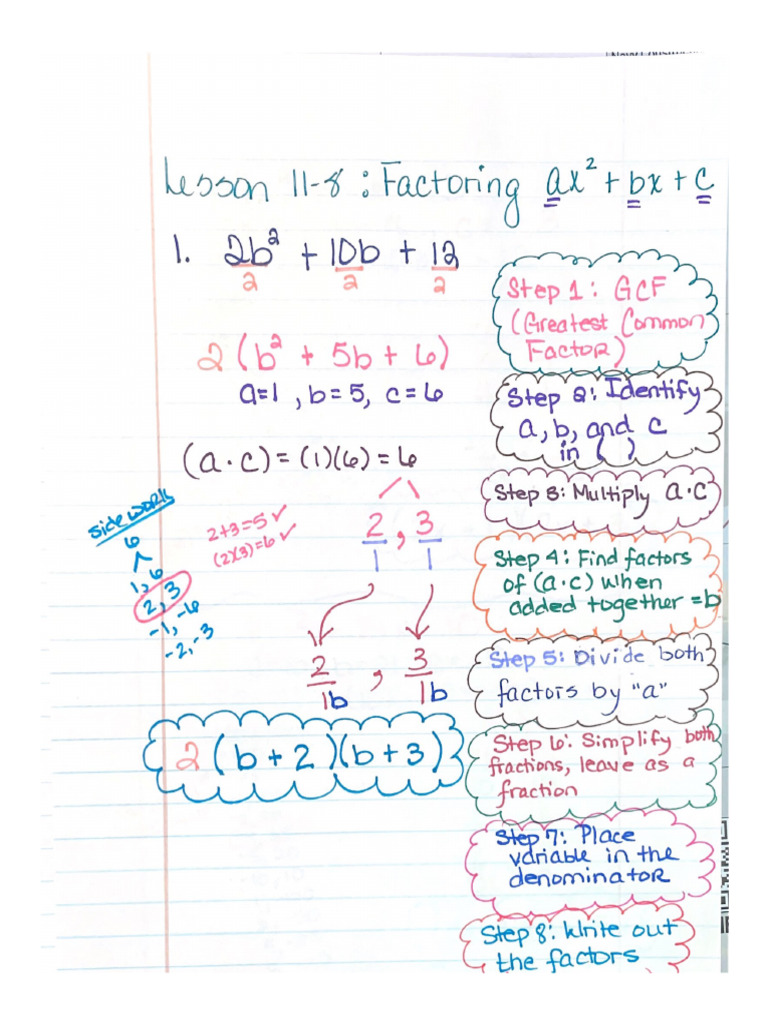 Lesson 11-8 : Factoring ax² + bx + c
1. 2b² + 10b + 12
2 2 2
2 (b² + 5b + 6)
a=1 , b=5, c=6
(a · c) = (1)(6) = 6
2 , 3
1 1
2+3=5 ✓
(2)(3)=6 ✓
side work
6
1, 6
2, 3
-1, -6
-2, -3
2 , 3
1b 1b
2 (b + 2)(b + 3)
Step 1: GCF
(Greatest Common
Factor)
Step 2: Identify
a, b, and c
in ( )
Step 3: Multiply a·c
Step 4: Find factors
of (a·c) when
added together =b
Step 5: Divide both
factors by "a"
Step 6: Simplify both
fractions, leave as a
fraction
Step 7: Place
variable in the
denominator
Step 8: Write out
the factors